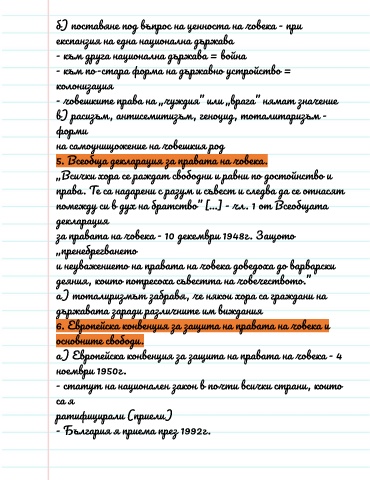 б) поставяне под въпрос на ценноста на човека - при
експанзия на една национална държава
- към друга национална държава = война
- към по-стара форма на държавно устройство =
колонизация
- човешките права на „чуждия" или „врага" нямат значение
в) расизъм, антисемитизъм, геноцид, тоталитаризъм -
форми
на самоунищожение на човешкия род
5. Всеобща декларация за правата на човека.
„Всички хора се раждат свободни и равни по достойнство и
права. Те са надарени с разум и съвест и следва да се отнасят
помежду си в дух на братство" [...] - чл. 1 от Всеобщата
декларация
за правата на човека - 10 декември 1948г. Защото
„пренебрегването
и неуважението на правата на човека доведоха до варварски
деяния, които потресоха съвестта на човечеството."
а) тотализмът забравя, че някои хора са граждани на
държавата заради различните им виждания
6. Европейска конвенция за защита на правата на човека и
основните свободи.
а) Европейска конвенция за защита на правата на човека - 4
ноември 1950г.
- статут на национален закон в почти всички страни, които
са я
ратифицирали (приели.)
- България я приема през 1992г.